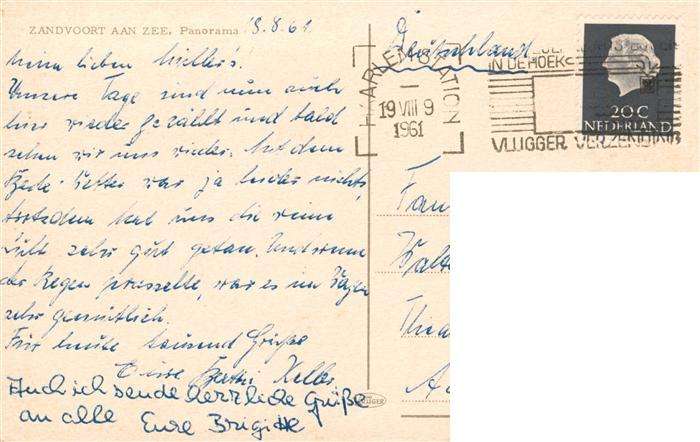 ZANDVOORT AAN ZEE, Panorama
18.8.61
Meine lieben Miller's!
Unsere Tage sind nun auch
hier wieder gezählt und bald
sehen wir uns wieder. Mit dem
Bade-Wetter war ja leider nichts,
trotzdem hat uns die reine
Luft sehr gut getan. Und wenn
der Regen prasselte, war es im
sehr gemütlich.
Für heute tausend Grüße
Eure Keller
Auch ich sende herzliche Grüße
an alle Eure Brigitte
Deutschland
HAARLEM STATION
19 VIII 9
1961
IN DE HOEK
VLUGGER VERZENDING
20 C
NEDERLAND
Fam